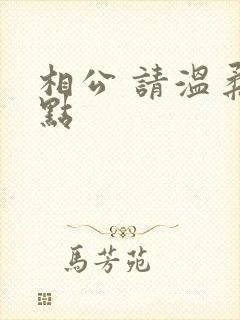 相公 請溫柔
點
馬芳苑